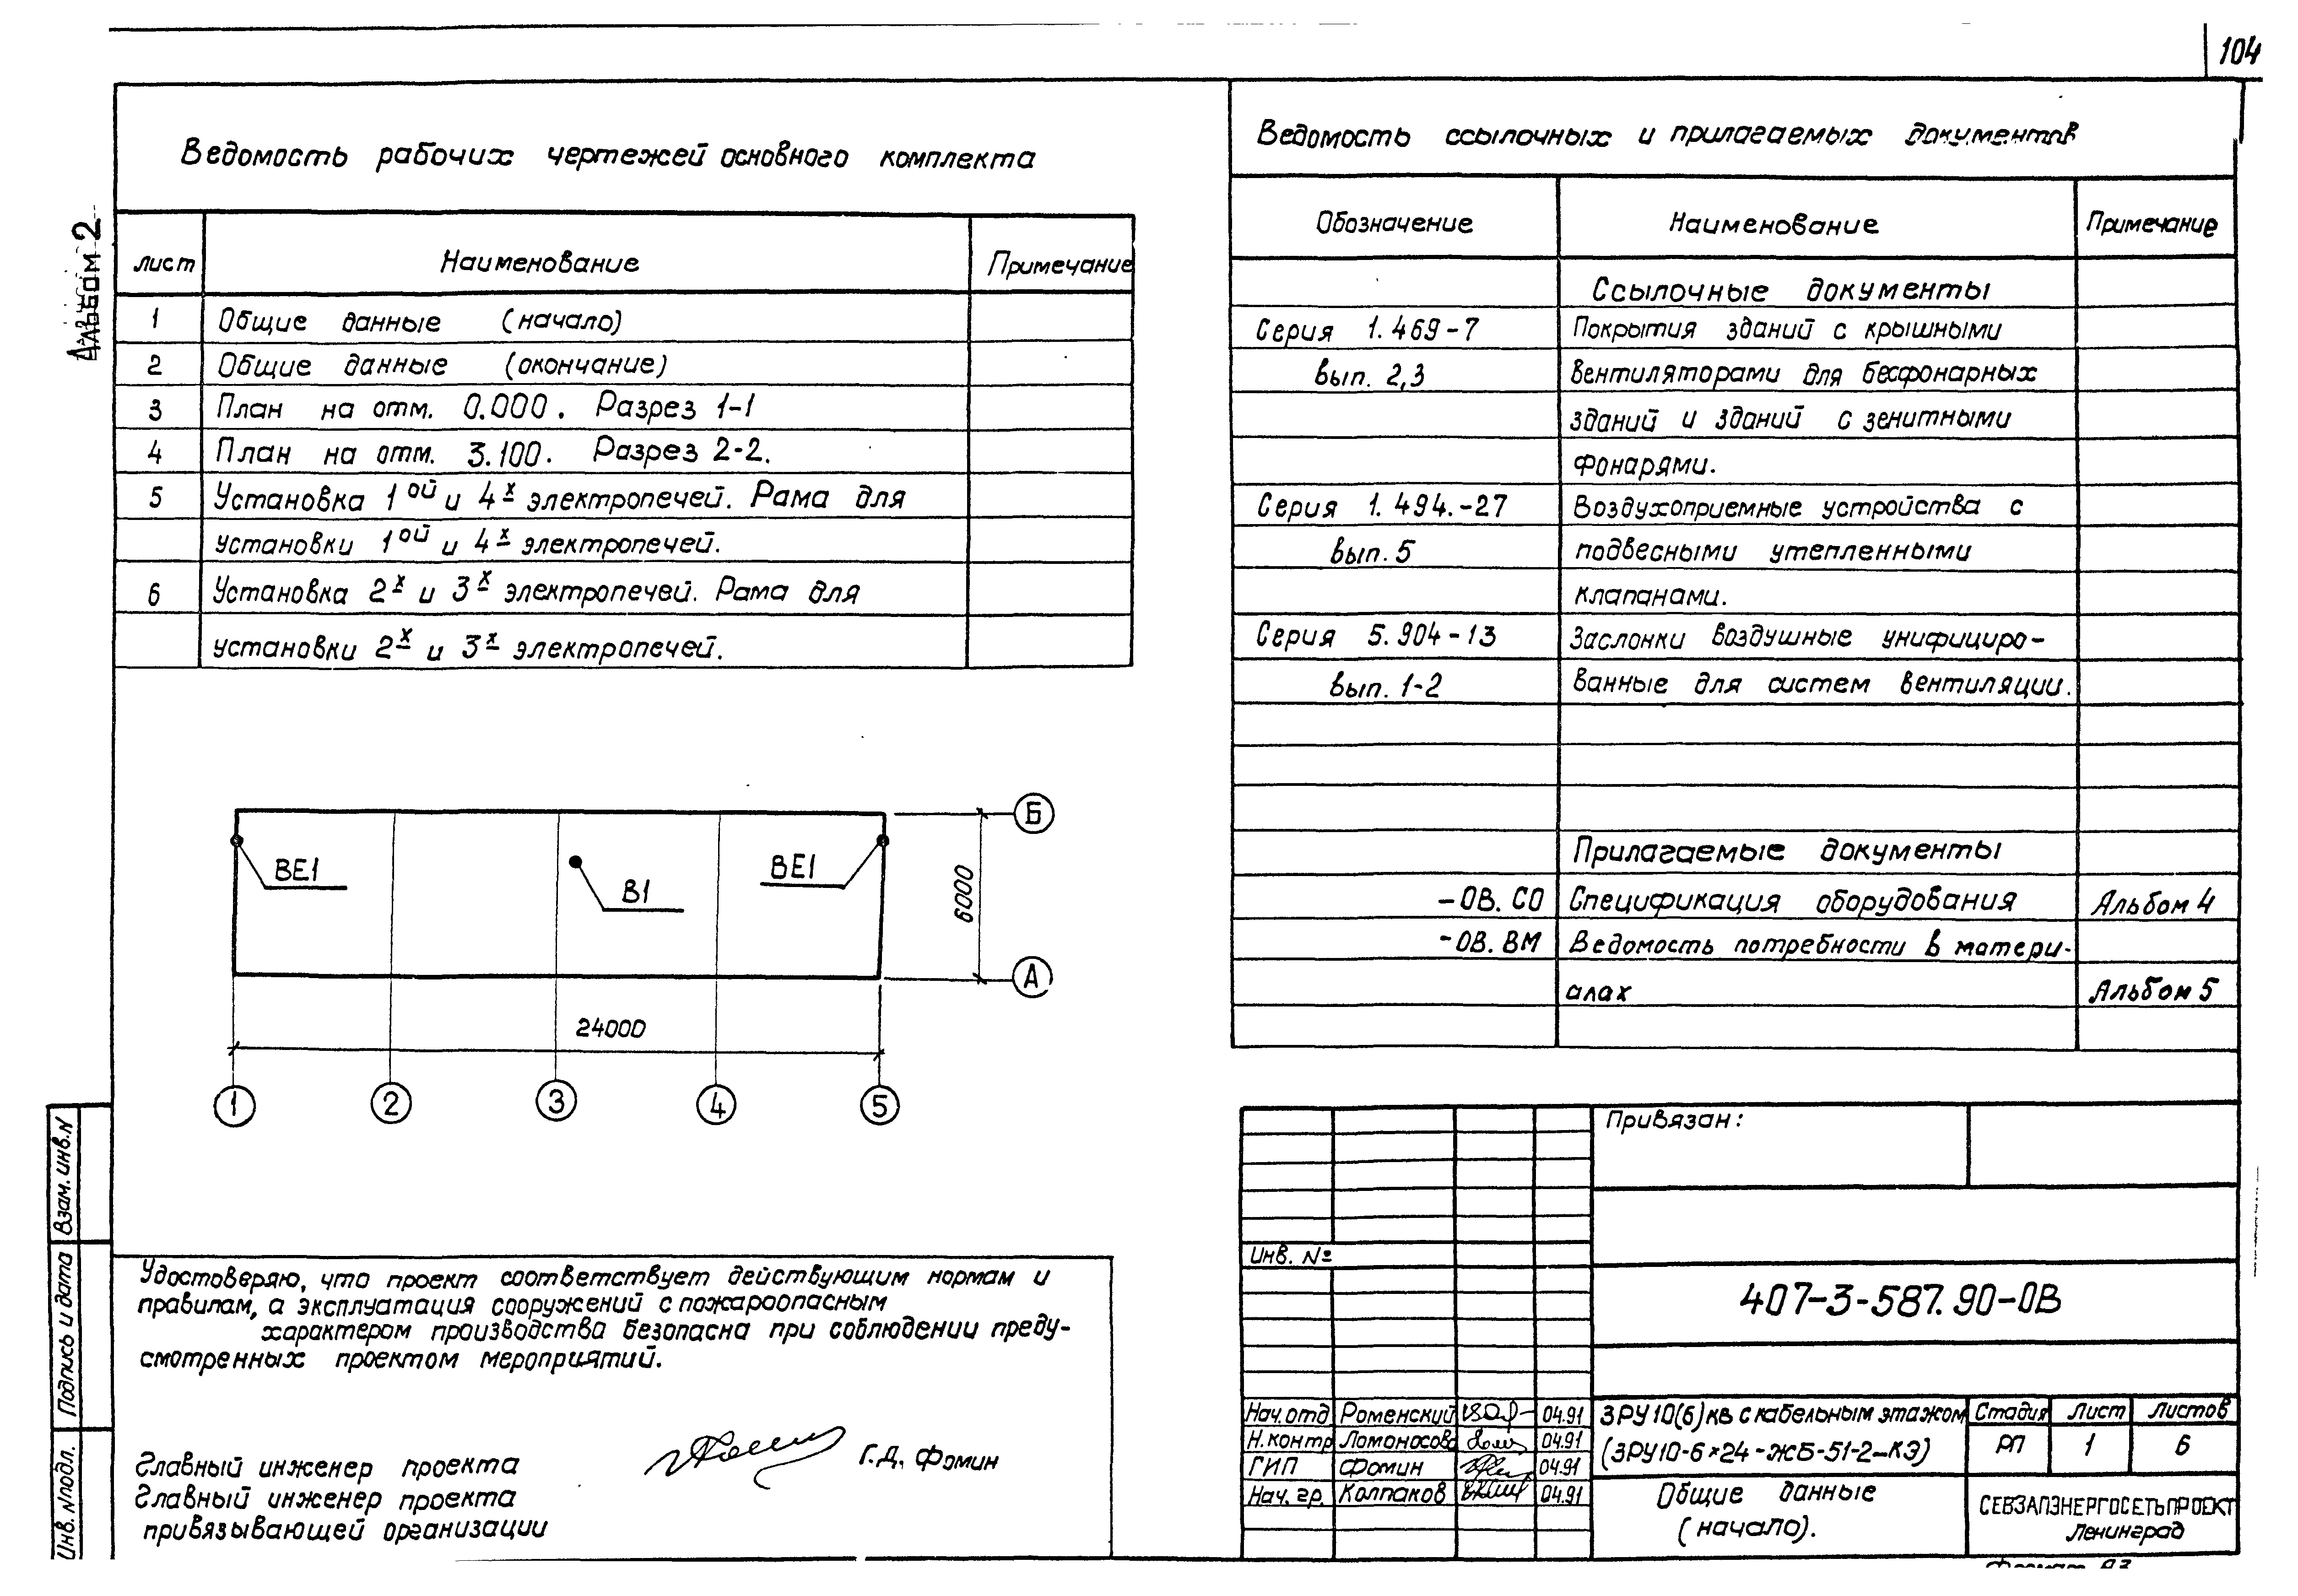 104
Альбом 2
Ведомость рабочих чертежей основного комплекта
лист Наименование Примечание
1 Общие данные (начало)
2 Общие данные (окончание)
3 План на отм. 0.000. Разрез 1-1
4 План на отм. 3.100. Разрез 2-2.
5 Установка 1ой и 4х электропечей. Рама для
установки 1ой и 4х электропечей.
6 Установка 2х и 3х электропечей. Рама для
установки 2х и 3х электропечей.
Ведомость ссылочных и прилагаемых документов
Обозначение Наименование Примечание
Ссылочные документы
Серия 1.469-7 Покрытия зданий с крышными
вып. 2,3 вентиляторами для бесфонарных
зданий и зданий с зенитными
фонарями.
Серия 1.494.-27 Воздухоприемные устройства с
вып. 5 подвесными утепленными
клапанами.
Серия 5.904-13 Заслонки воздушные унифициро-
вып. 1-2 ванные для систем вентиляции.
Прилагаемые документы
-ОВ.СО Спецификация оборудования Альбом 4
-ОВ.ВМ Ведомость потребности в матери-
алах Альбом 5
Б
ВЕ1 В1 ВЕ1
6000
А
24000
1 2 3 4 5
Удостоверяю, что проект соответствует действующим нормам и
правилам, а эксплуатация сооружений с пожароопасным
характером производства безопасна при соблюдении преду-
смотренных проектом мероприятий.
Главный инженер проекта Г.Д. Фомин
Главный инженер проекта
привязывающей организации
Взам. инв. N
Подпись и дата
Инв. N подл.
Привязан:
Инв. №
407-3-587.90-ОВ
Нач. отд Роменский 04.91
Н. контр Ломоносова 04.91
ГИП Фомин 04.91
Нач. гр. Колпаков 04.91
ЗРУ 10(6) кв с кабельным этажом
(ЗРУ10-6×24-ЖБ-51-2-КЭ)
Стадия Лист Листов
РП 1 6
Общие данные
(начало).
СЕВЗАПЭНЕРГОСЕТЬПРОЕКТ
Ленинград